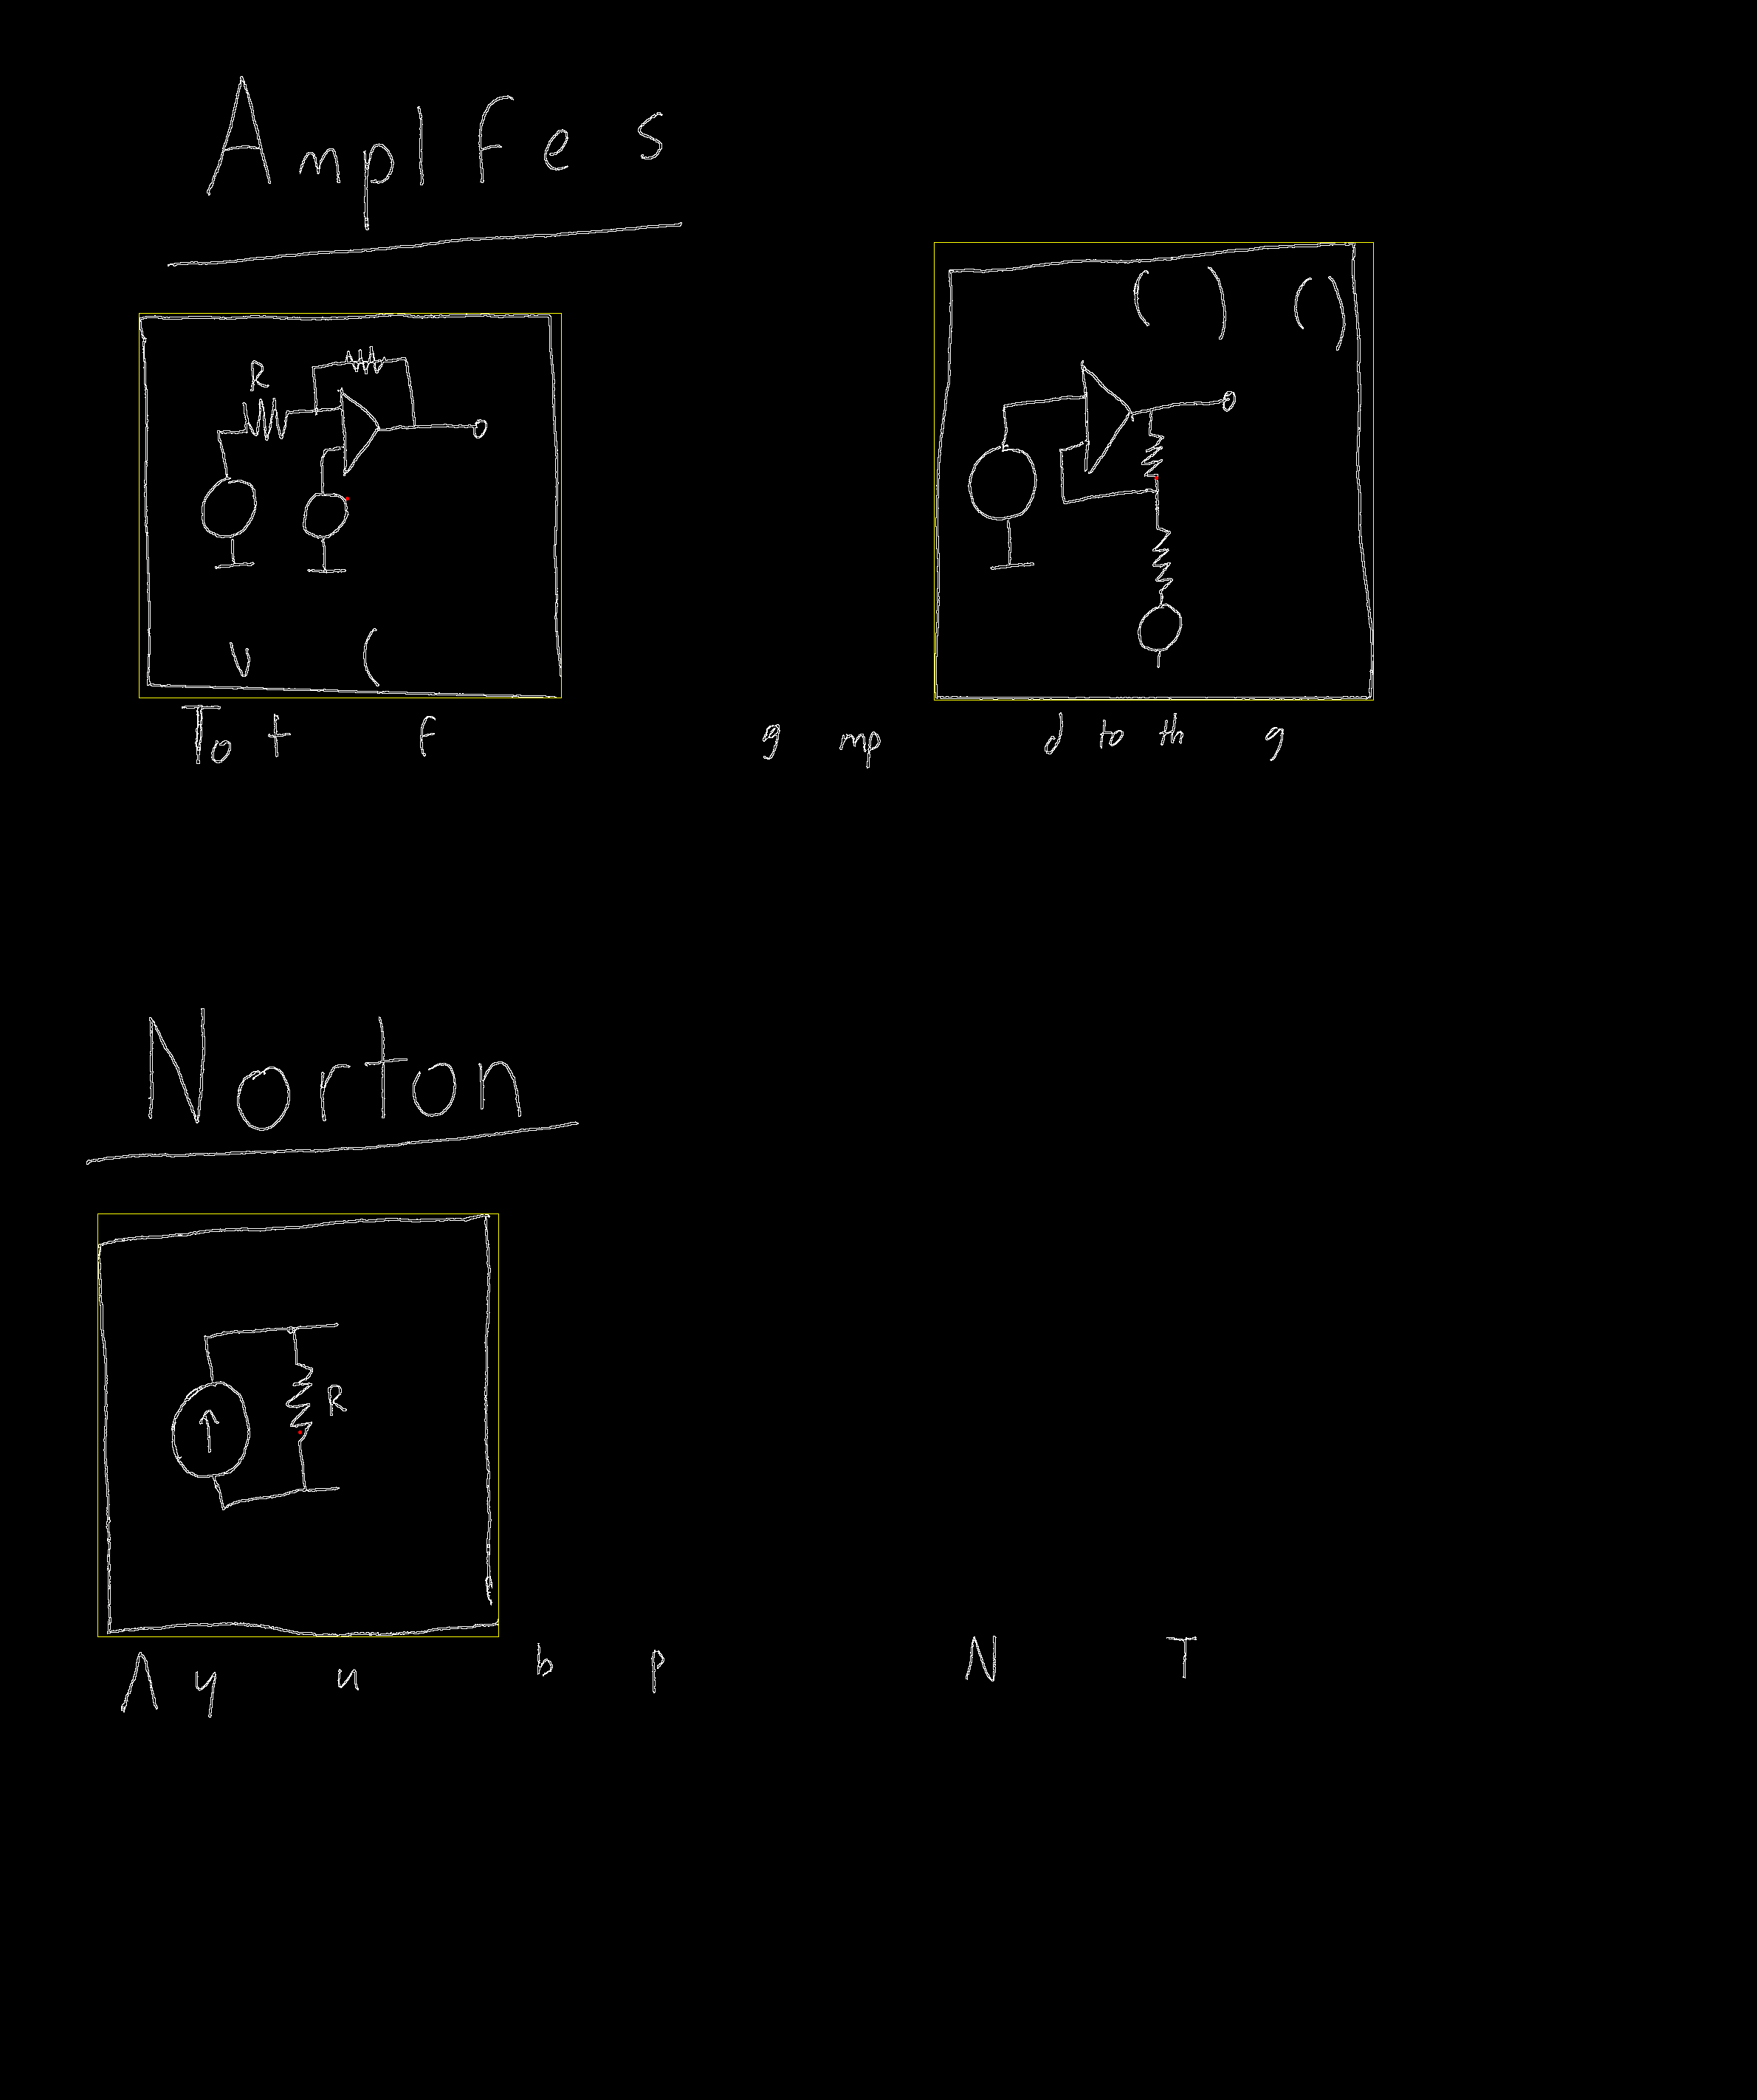 Ampl F e s
R
V (
( ) ( )
To t f g mp d to th g
Norton
R
y u b p N T